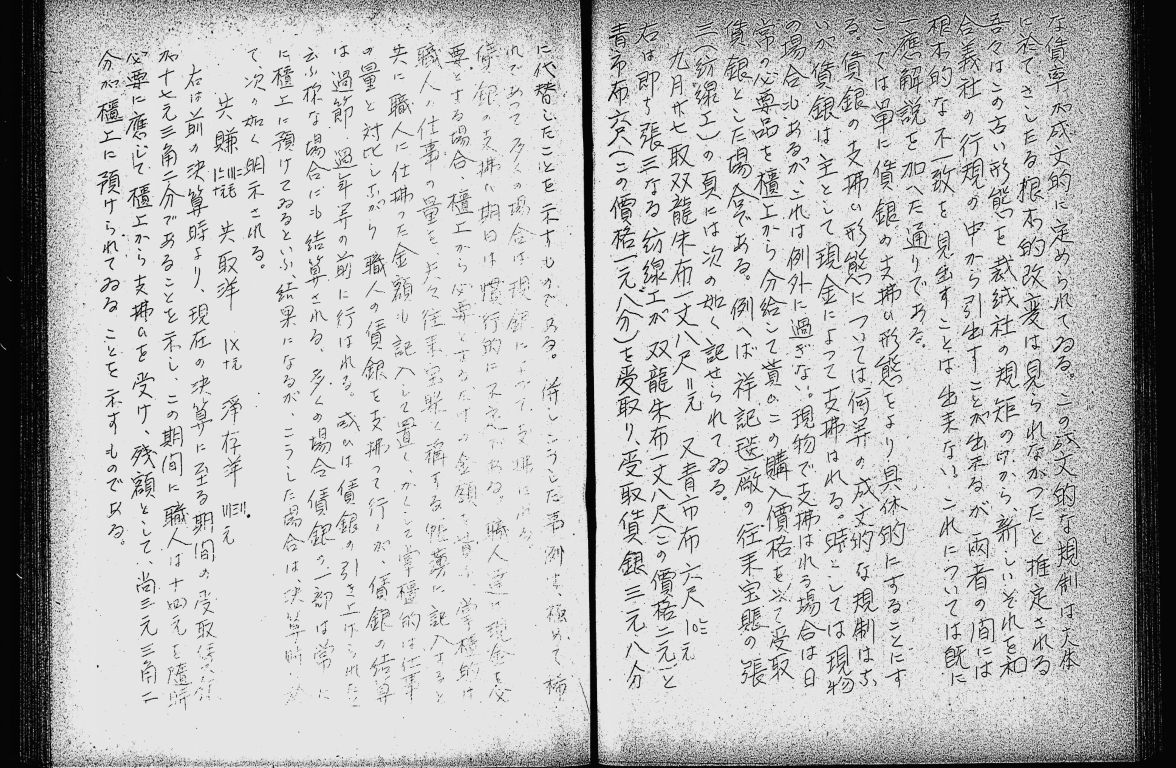 な賃率が成文的に定められてゐる。この成文的な規制は大体
に於てさしたる根本的改変は見られなかつたと推定される
吾々はこの古い形態を裁絨社の規矩の内から、新しいそれを和
合義社の行規の中から引出すことが出来るが両者の間には
根本的な不一致を見出すことは出来ない。これについては既に
一應解説を加へた通りである。
こゝでは單に賃銀の支拂ひ形態をより具体的にすることにす
る。賃銀の支拂ひ形態については何等の成文的な規制はな
いが賃銀は主として現金によつて支拂はれる。時としては現物
の場合もあるが、これは例外に過ぎない。現物で支拂はれる場合は日
常の必要品を櫃上から分給して貰ひこの購入價格を以て受取
賃銀とした場合である。例へば祥記毯廠の往来宝賬の張
三（紡線工）の頁には次の如く記せられてゐる。
九月廿七取双龍朱布一丈八尺〢元 又青市布六尺
右は即ち張三なる紡線工が双龍朱布一丈八尺（この價格二元）と
青市布六尺（この價格一元八分）を受取り、受取賃銀三元八分
に代替したことを示すものである。併しこうした事例は、極めて稀
れであつて多くの場合は現銀によつて支拂はれる。
賃銀の支拂ひ期日は慣行的に不定である。職人達は現金を必
要とする場合、櫃上から必要とするだけの金額を貰ふ。掌櫃的は
職人の仕事の量を、夫々往来宝賬と稱する帳薄に記入すると
共に職人に仕拂つた金額も記入して置く、かくして掌櫃的は仕事
の量と対比しながら職人の賃銀を支拂つて行くが、賃銀の結算
は過節、過年等の前に行はれる。或ひは賃銀の引き上げられたと
云ふ様な場合にも結算される、多くの場合賃銀の一部は常に
に櫃上に預けてゐるといふ結果になるが、こうした場合は、決算時に
て次の如く明示される。
共賺 共取洋 淨存洋
右は前の決算時より、現在の決算に至る期間の受取
が十七元三角二分であることを示し、この期間に職人は十四元を隨時
必要に應じて櫃上から支拂ひを受け、残額として、尚三元三角二
分が櫃上に預けられてゐることを示すものである。